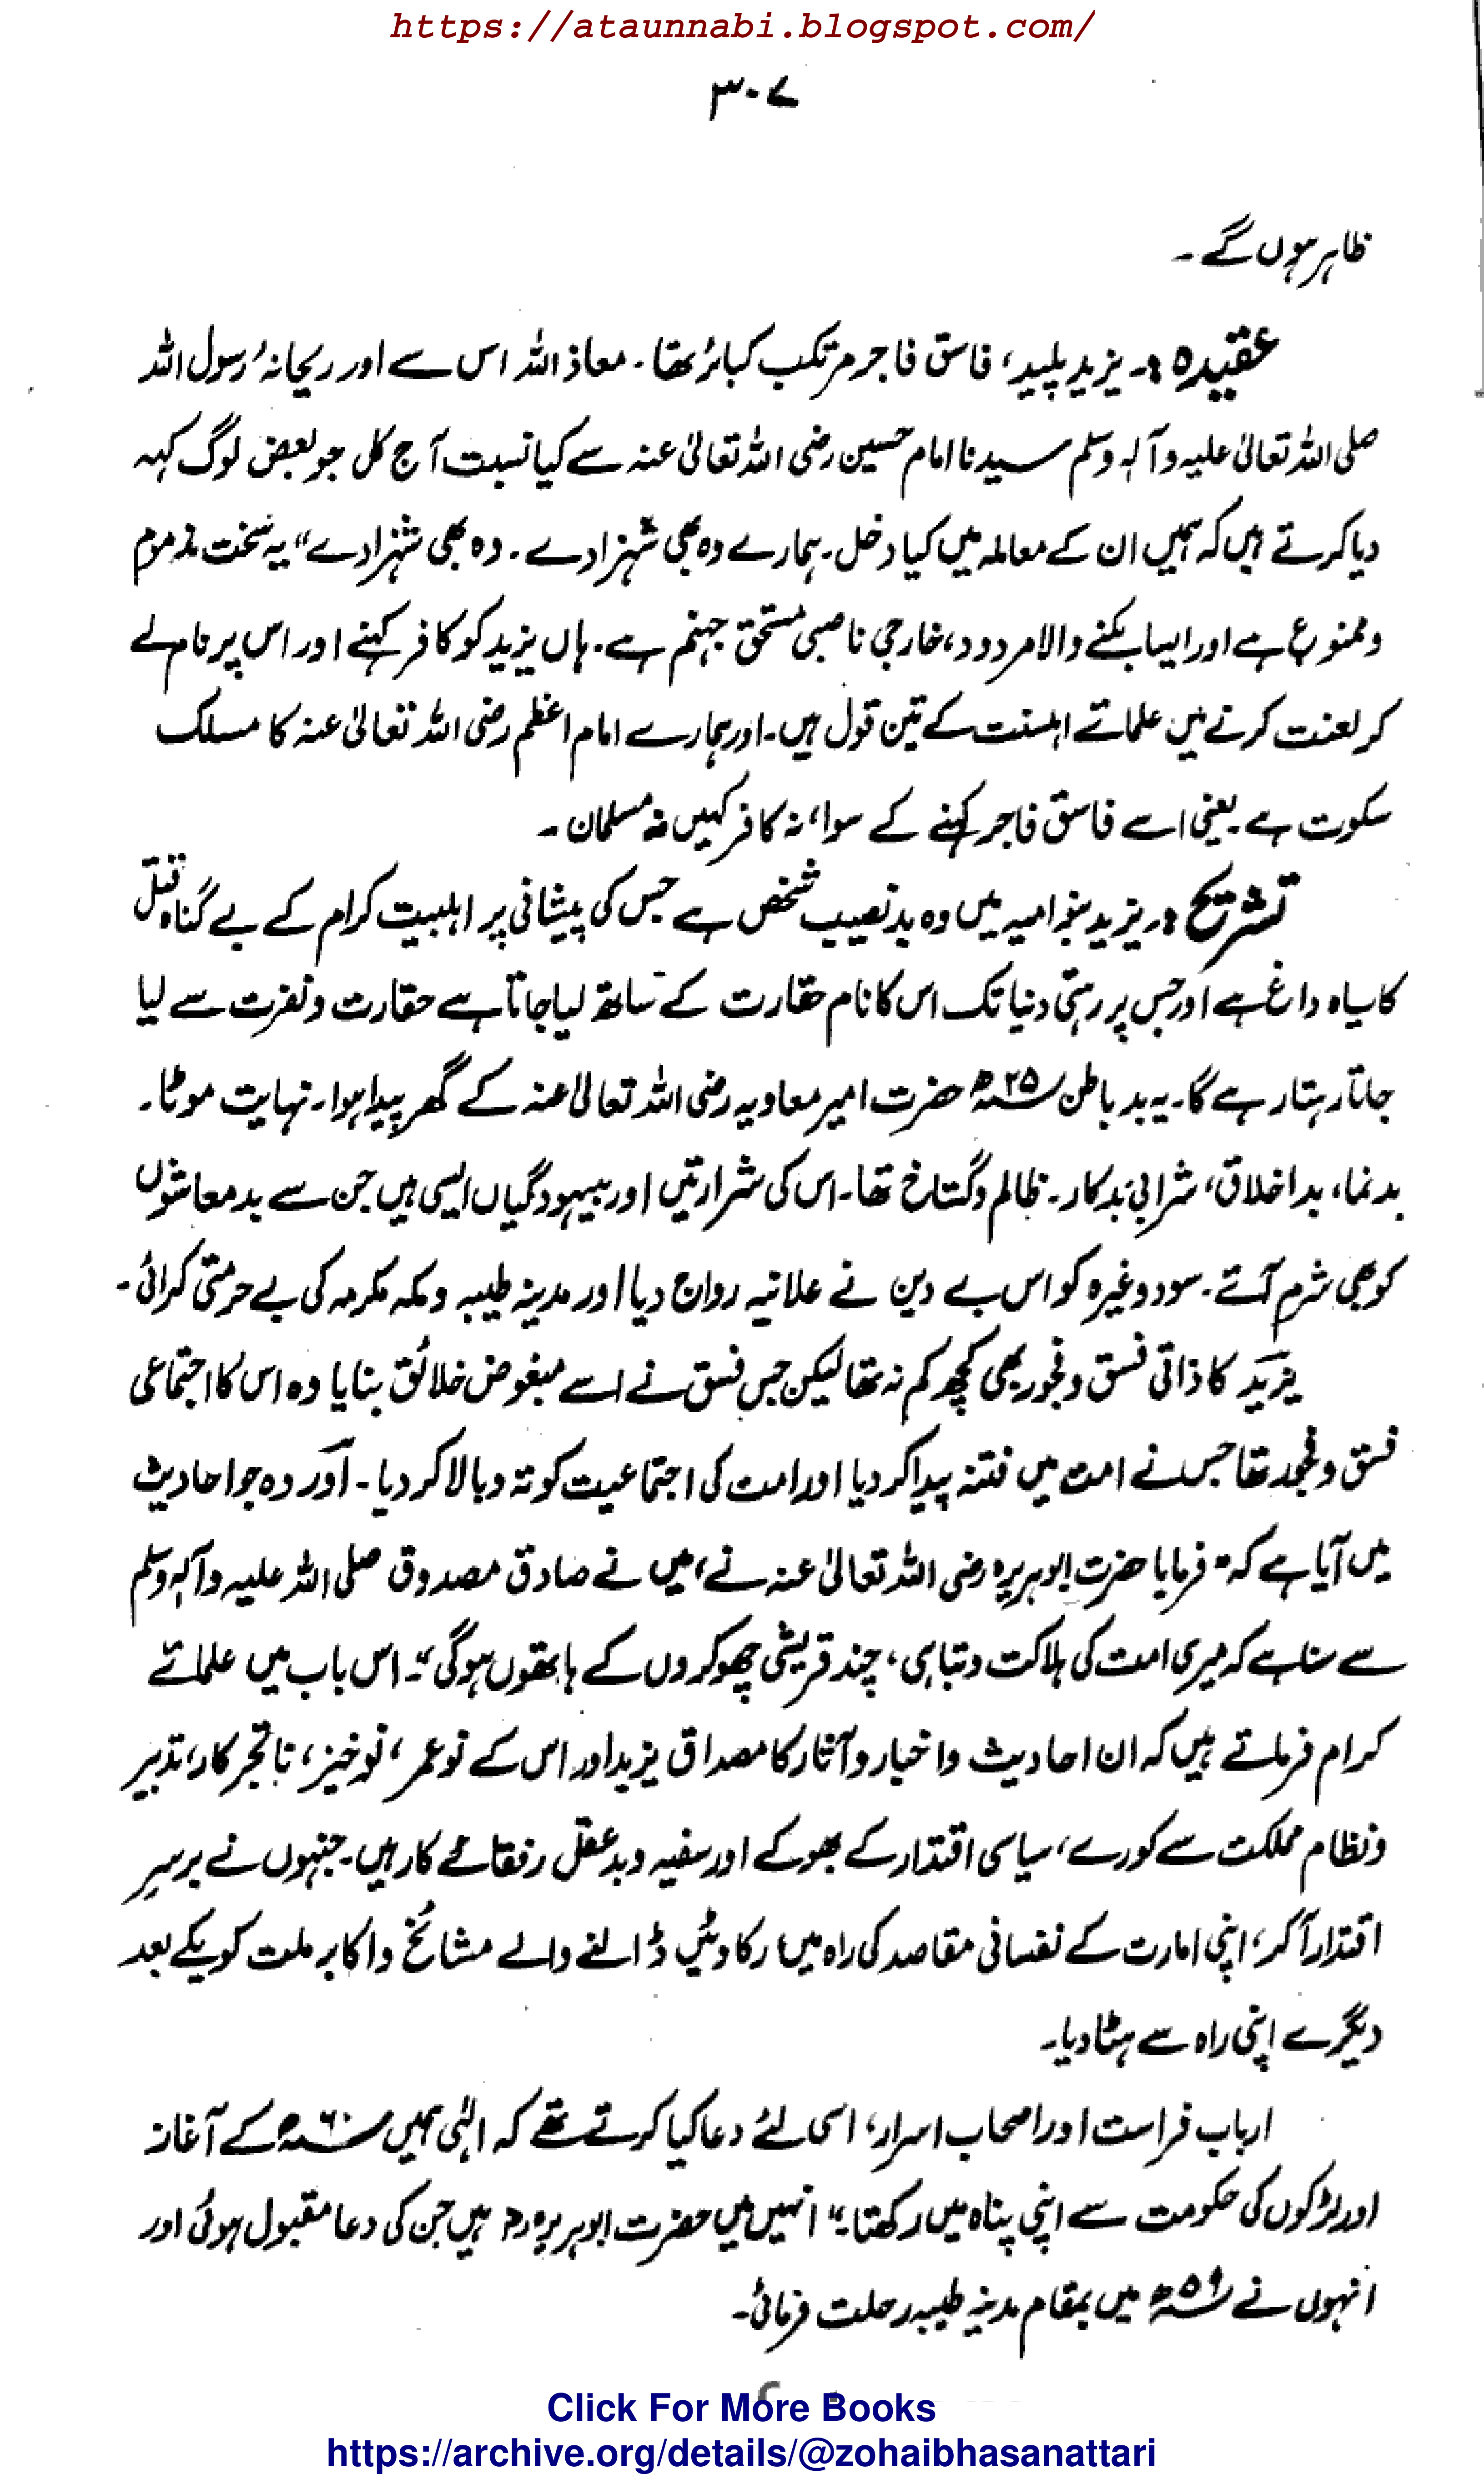 https://ataunnabi.blogspot.com/
۳۰۷
ظاہر ہوں گے ۔
عقیدہ :۔ یزید پلید، فاسق فاجر مرتکب کبائر تھا ۔ معاذ اللہ اس سے اور ریحانۂ رسول اللہ
صلی اللہ تعالیٰ علیہ وآلہ وسلم سیدنا امام حسین رضی اللہ تعالیٰ عنہ سے کیا نسبت آج کل جو بعض لوگ کہہ
دیا کرتے ہیں کہ ہمیں ان کے معاملہ میں کیا دخل ۔ ہمارے وہ بھی شہزادے ۔ وہ بھی شہزادے“ یہ سخت مذموم
و ممنوع ہے اور ایسا بکنے والا مردود، خارجی ناصبی مستحق جہنم ہے ۔ ہاں یزید کو کافر کہنے اور اس پر نام لے
کر لعنت کرنے میں علمائے اہلسنت کے تین قول ہیں ۔ اور ہمارے امام اعظم رضی اللہ تعالیٰ عنہ کا مسلک
سکوت ہے ۔ یعنی اسے فاسق فاجر کہنے کے سوا، نہ کافر کہیں نہ مسلمان ۔
تشریح :۔ یزید بنو امیہ میں وہ بدنصیب شخص ہے جس کی پیشانی پر اہلبیت کرام کے بے گناہ قتل
کا سیاہ داغ ہے اور جس پر رہتی دنیا تک اس کا نام حقارت کے ساتھ لیا جاتا ہے حقارت و نفرت سے لیا
جاتا رہتا رہے گا ۔ یہ بد باطن ۲۵ھ حضرت امیر معاویہ رضی اللہ تعالیٰ عنہ کے گھر پیدا ہوا ۔ نہایت موٹا ۔
بدنما، بداخلاق، شرابی بدکار ۔ ظالم و گستاخ تھا ۔ اس کی شرارتیں اور بیہودگیاں ایسی ہیں جن سے بدمعاشوں
کو بھی شرم آئے ۔ سود وغیرہ کو اس بے دین نے علانیہ رواج دیا اور مدینہ طیبہ و مکہ مکرمہ کی بے حرمتی کرائی ۔
یزید کا ذاتی فسق و فجور بھی کچھ کم نہ تھا لیکن جس فسق نے اسے مبغوض خلائق بنایا وہ اس کا اجتماعی
فسق و فجور تھا جس نے امت میں فتنہ پیدا کر دیا اور امت کی اجتماعیت کو تہ و بالا کر دیا ۔ اور وہ جو احادیث
میں آیا ہے کہ ” فرمایا حضرت ابوہریرہ رضی اللہ تعالیٰ عنہ نے، میں نے صادق مصدوق صلی اللہ علیہ وآلہ وسلم
سے سنا ہے کہ میری امت کی ہلاکت و تباہی، چند قریشی چھوکروں کے ہاتھوں ہوگی“ ۔ اس باب میں علمائے
کرام فرماتے ہیں کہ ان احادیث و اخبار و آثار کا مصداق یزید اور اس کے نوعمر، نوخیز، ناتجربہ کار، تدبیر
و نظام مملکت سے کورے، سیاسی اقتدار کے بھوکے اور سفیہ و بدعقل رفقائے کار ہیں ۔ جنہوں نے برسرِ
اقتدار آکر، اپنی امارت کے نفسانی مقاصد کی راہ میں، رکاوٹیں ڈالنے والے مشائخ و اکابر ملت کو یکے بعد
دیگرے اپنی راہ سے ہٹا دیا ۔
ارباب فراست اور اصحاب اسرار، اسی لئے دعا کیا کرتے تھے کہ الٰہی ہمیں ۶۰ھ کے آغاز
اور لڑکوں کی حکومت سے اپنی پناہ میں رکھنا ۔“ انہیں میں حضرت ابوہریرہ رض ہیں جن کی دعا مقبول ہوئی اور
انہوں نے ۵۹ھ میں بمقام مدینہ طیبہ رحلت فرمائی ۔
Click For More Books
https://archive.org/details/@zohaibhasanattari